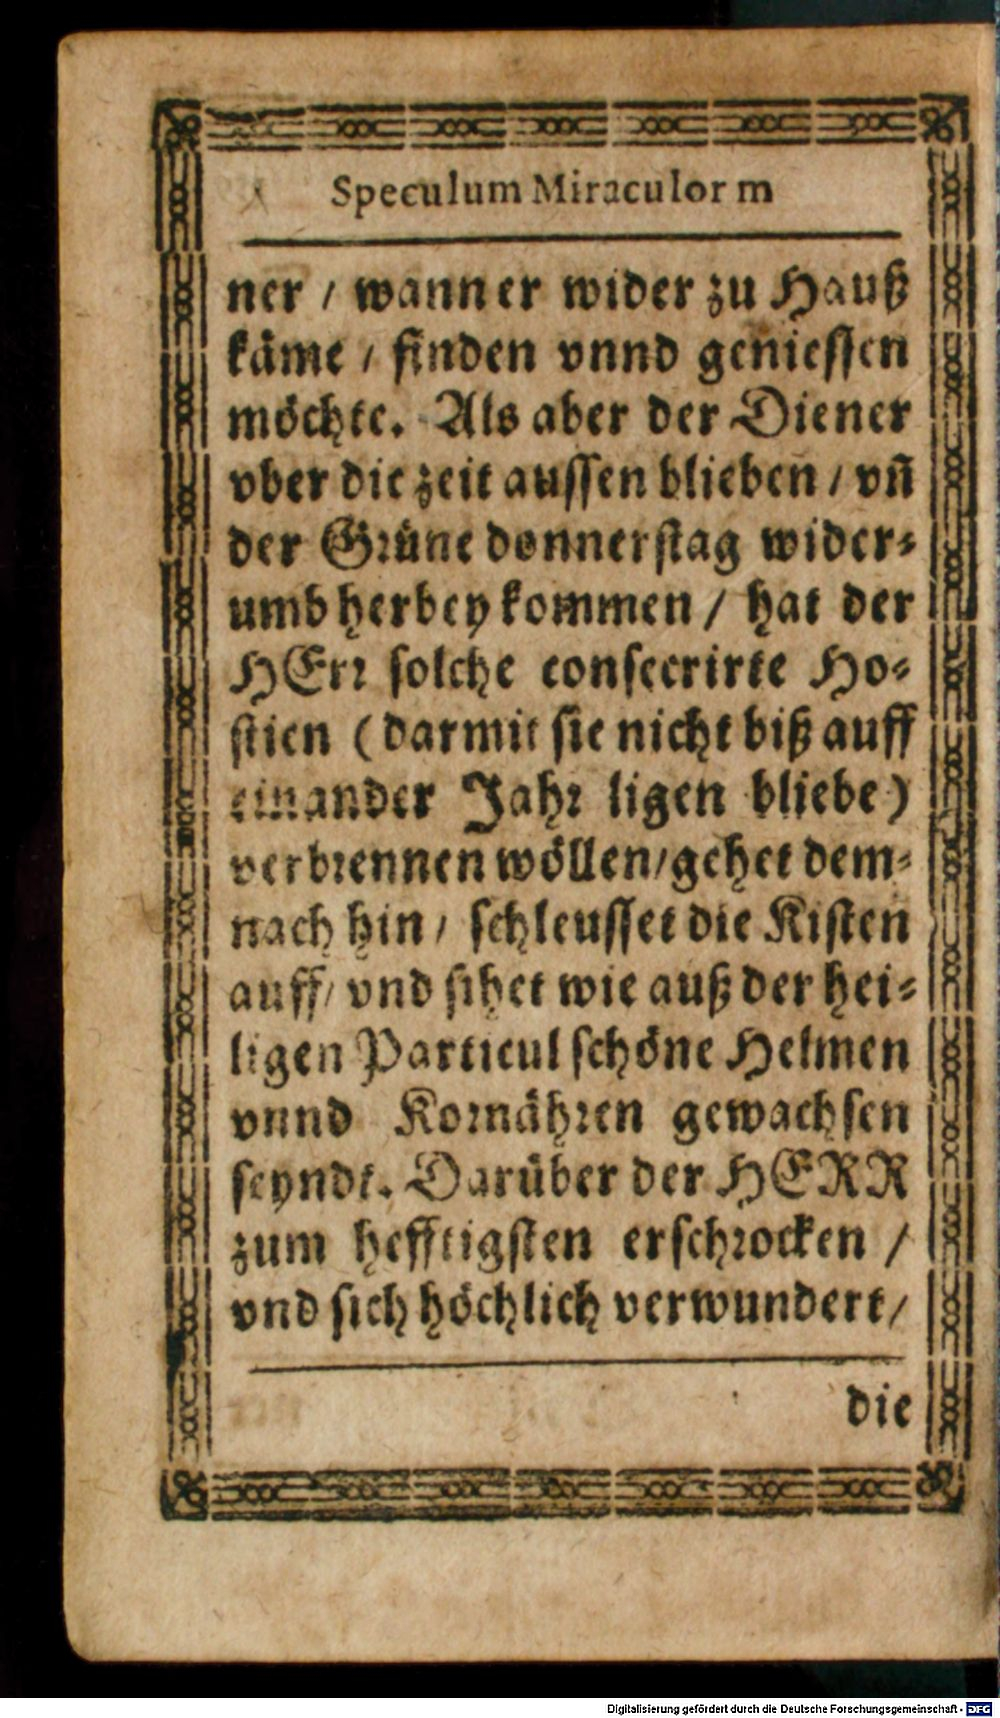 Speculum Miraculor m
ner / wann er wider zu Hauß
käme / finden vnnd geniessen
möchte. Als aber der Diener
vber die zeit aussen blieben / vn̄
der Grüne donnerstag wider⸗
umb herbey kommen / hat der
HErr solche consecrirte Ho⸗
stien (darmit sie nicht biß auff
einander Jahr ligen bliebe)
verbrennen wöllen/gehet dem⸗
nach hin / schleusset die Kisten
auff/ vnd sihet wie auß der hei⸗
ligen Particul schöne Helmen
vnnd Kornähren gewachsen
seyndt. Darüber der HERR
zum hefftigsten erschrocken /
vnd sich höchlich verwundert/
die
Digitalisierung gefördert durch die Deutsche Forschungsgemeinschaft - DFG